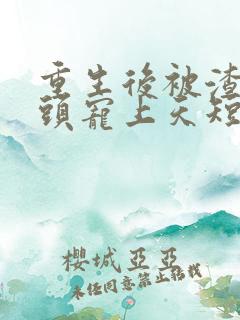 重生後被渣
頭寵上天短
櫻城亞亞
未任同意禁止轉載